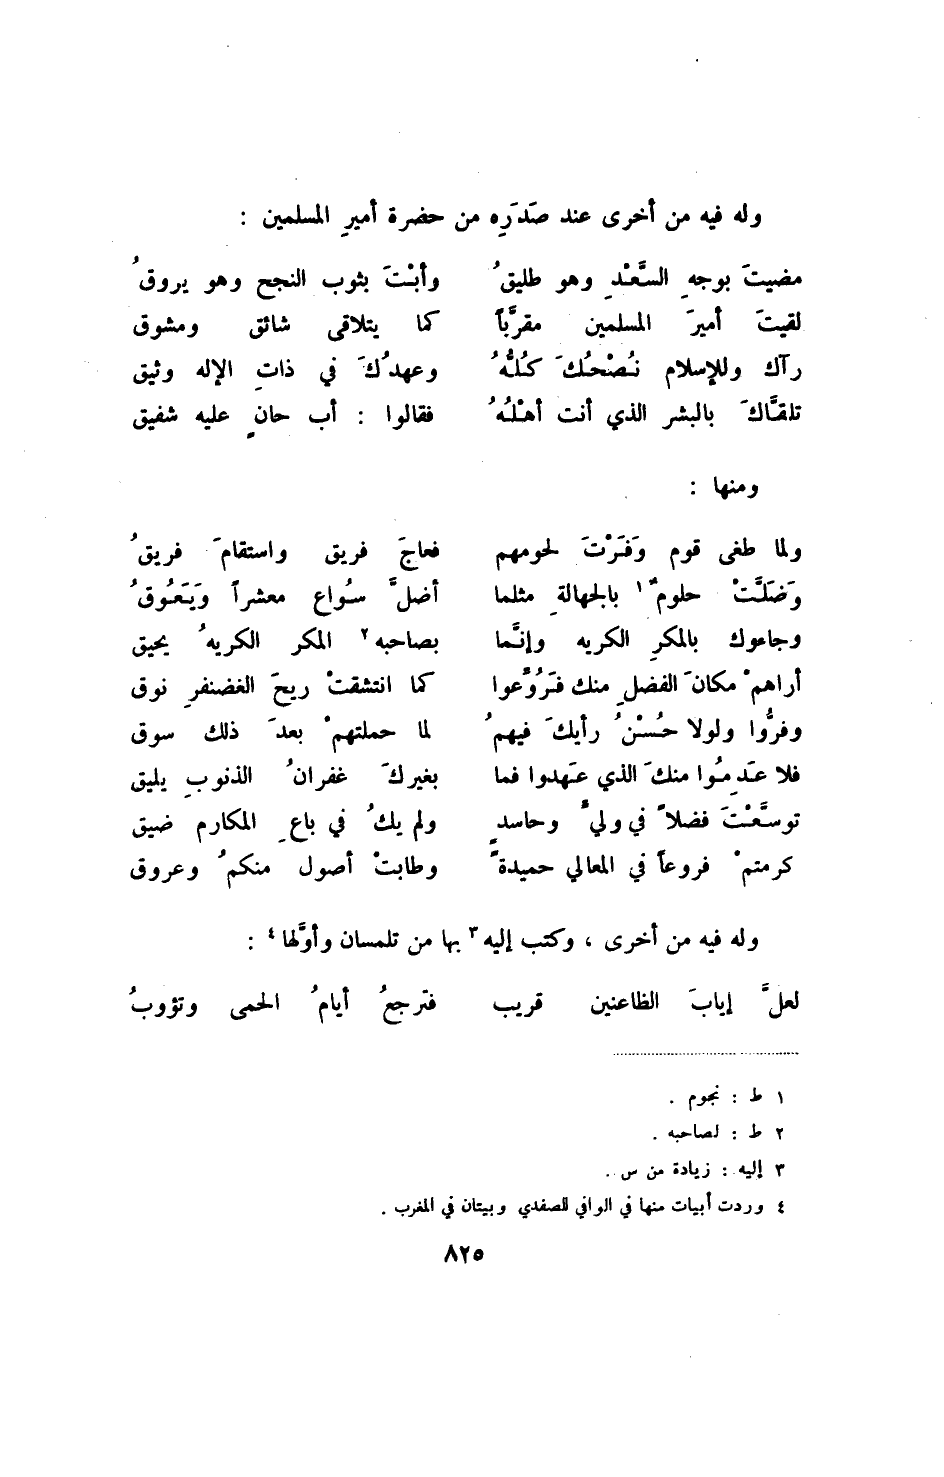 وله فيه من أخرى عند صَدَرِه من حضرة أميرِ المسلمين :
مضيتَ بوجهِ السَّعْدِ وهو طليقُ وأبْتَ بثوب النجح وهو يروقُ
لقيتَ أميرَ المسلمين مقرَّباً كما يتلاقى شائق ومشوق
رآك وللإسلام نُصْحُكَ كُلُّهُ وعهدُكَ في ذاتِ الإله وثيق
تلقَّاكَ بالبشر الذي أنت أهْلُهُ فقالوا : أب حانٍ عليه شفيق
ومنها :
ولما طغى قوم وَفَرْتَ لحومهم فعاجَ فريق واستقامَ فريقُ
وَضَلَّتْ حلومٌ١ بالجهالةِ مثلما أضلَّ سُواع معشراً وَيَعُوقُ
وجاءوك بالمكرِ الكريه وإنَّما بصاحبه٢ المكر الكريهُ يحيق
أراهمْ مكانَ الفضلِ منك فَرُوِّعوا كما انتشقتْ ريحَ الغضنفرِ نوق
وفرُّوا ولولا حُسْنُ رأيكَ فيهمُ لما حملتهمْ بعدَ ذلك سوق
فلا عَدِمُوا منكَ الذي عَهدوا فما بغيركَ غفرانُ الذنوبِ يليق
توسَّعْتَ فضلاً في وليٍّ وحاسدٍ ولم يكُ في باعِ المكارم ضيق
كرمتمْ فروعاً في المعالي حميدةً وطابتْ أصول منكمُ وعروق
وله فيه من أخرى ، وكتب إليه٣ بها من تلمسان وأوَّلها٤ :
لعلَّ إيابَ الظاعنين قريب فترجعُ أيامُ الحمى وتؤوبُ
١ ط : نجوم .
٢ ط : لصاحبه .
٣ إليه : زيادة من س .
٤ وردت أبيات منها في الوافي للصفدي وبيتان في المغرب .
٨٢٥